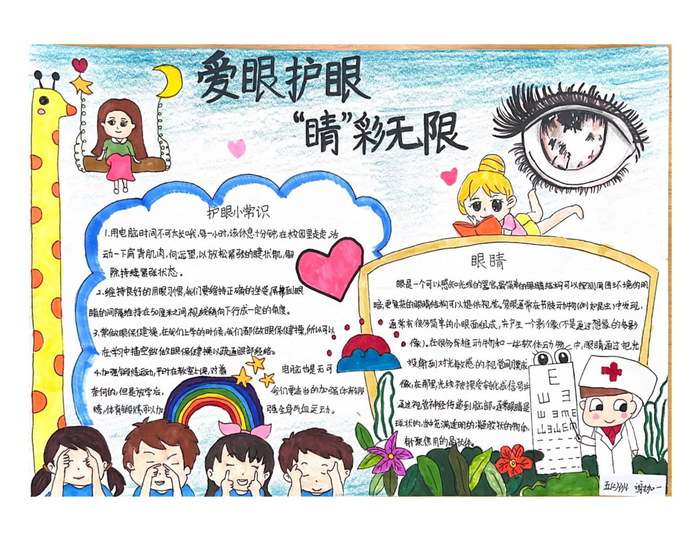 爱眼护眼
“睛”彩无限
护眼小常识
1.用电脑时间不可太长哦,每一小时,该休息十分钟,在校园里走走,活
动一下肩背肌肉,向远望,以放松紧张的睫状肌,解
除持续紧张状态。
2.维持良好的用眼习惯,我们要维持正确的坐姿,屏幕到眼
睛的间隔维持在50厘米之间,视线稍向下行成一定的角度。
3.常做眼保健操,在我们上学的时候,我们都做眼保健操,所以可以
在学习中插空做做眼保健操以疏通眼部经络。
4.加强锻炼运动,平时在教室上课,对着
电脑也是无可
奈何的,但是放学后,
会们更适当的加强体育锻
炼,体育锻炼可以加
强全身气血运动。
眼睛
眼是一个可以感知光线的器官。最简单的眼睛结构可以探测周围环境的明
暗,更复杂的眼睛结构可以提供视觉。复眼通常在节肢动物(例如昆虫)中发现,
通常有很多简单的小眼面组成,并产生一个影像(不是通过想象的多影
像)。在很多脊椎动物和一些软体动物中,眼睛通过把光
投射到对光敏感的视
像,在那里光线被接受并转化成信号并
通过视神经传递到脑部。通常眼睛是
球状的,当中充满透明的凝胶状的物质,
E